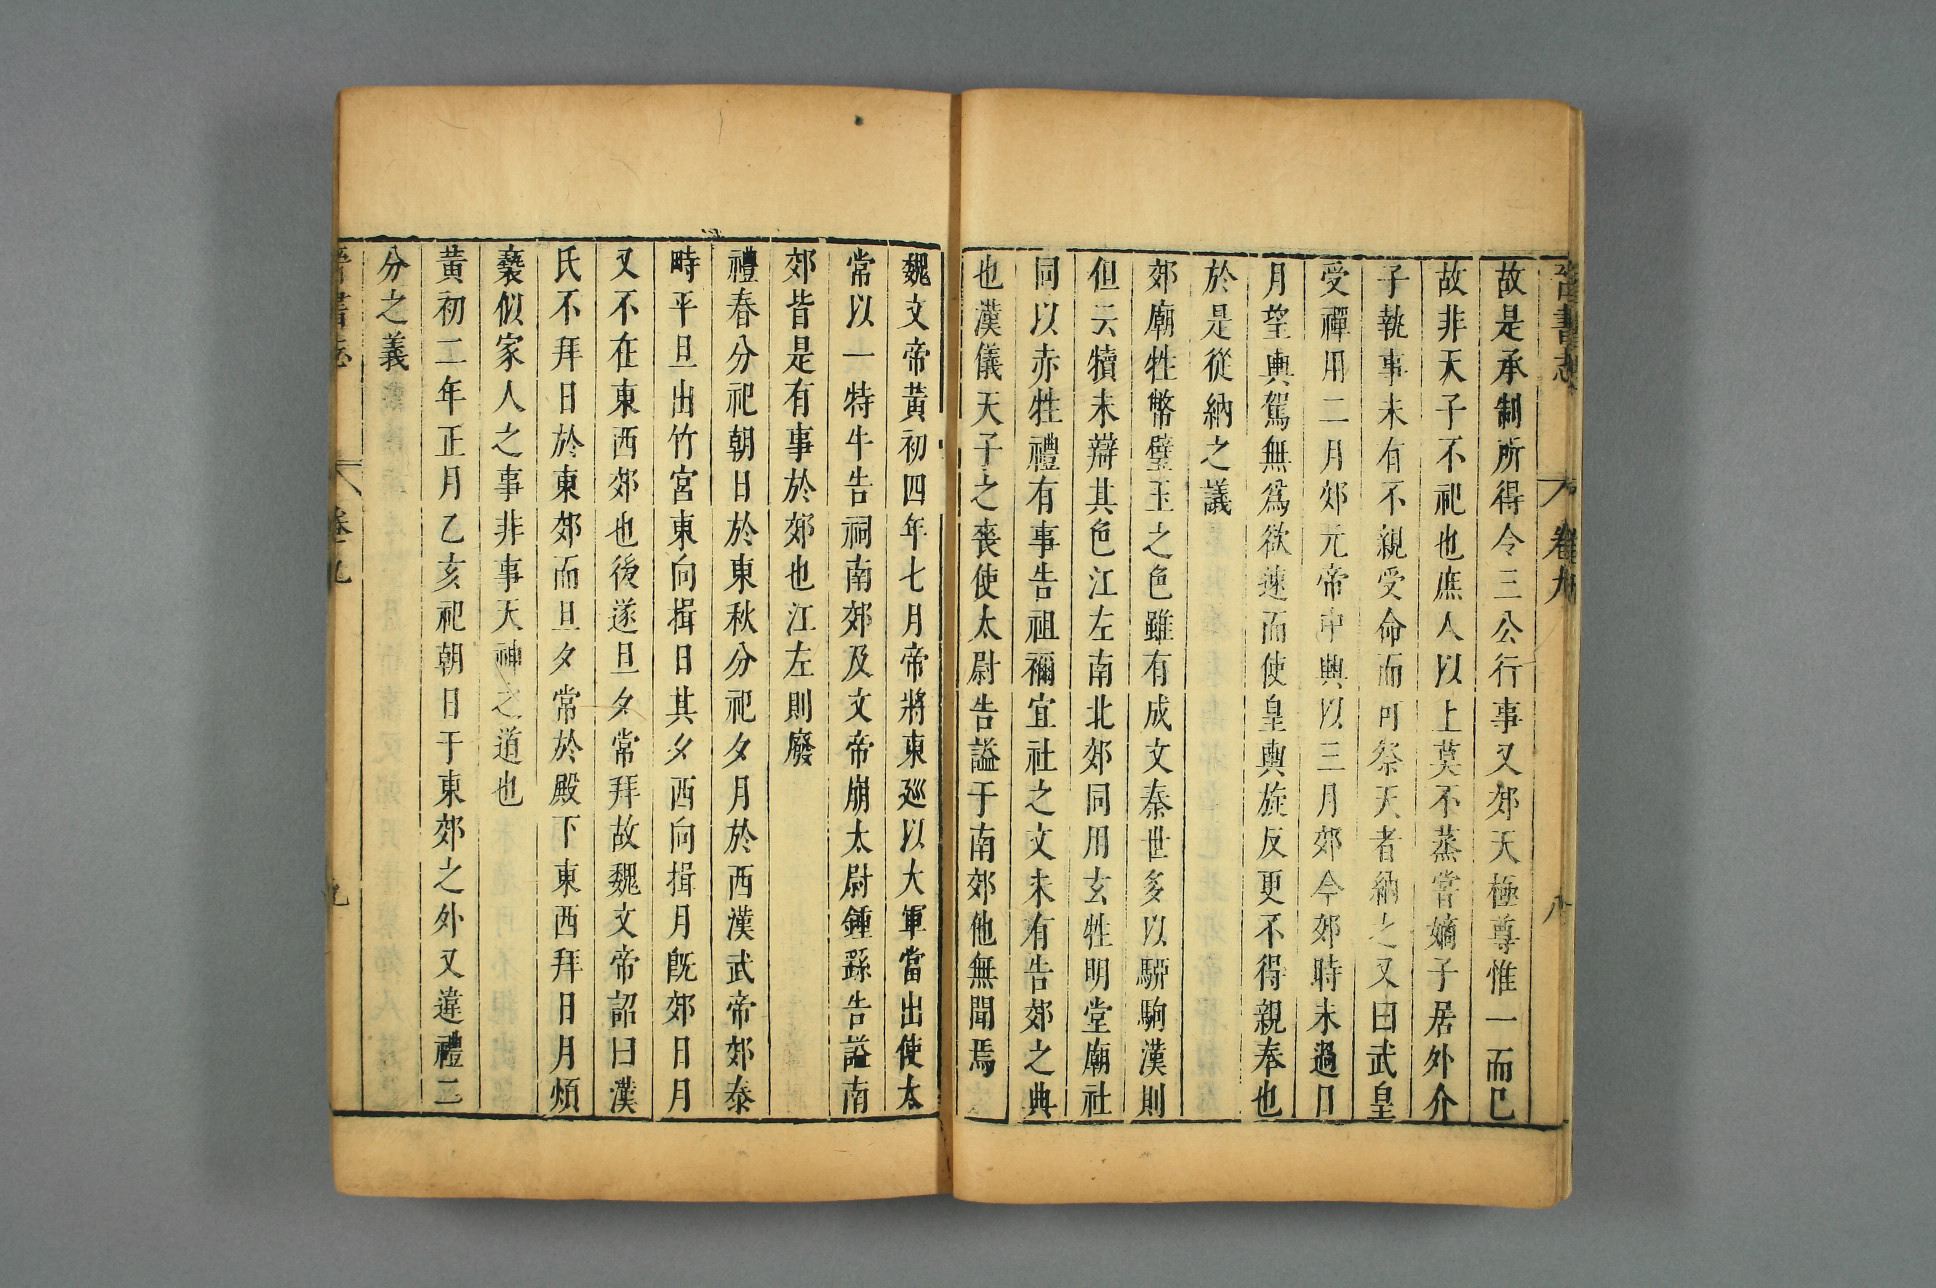 晉書志 卷九 八
故是承制所得令三公行事又郊天極尊惟一而已
故非天子不祀也庶人以上莫不蒸嘗嫡子居外介
子執事未有不親受命而可祭天者納之又曰武皇
受禪用二月郊元帝中興以三月郊今郊時未過日
月望輿駕無爲欲速而使皇輿旋反更不得親奉也
於是從納之議
郊廟牲幣璧玉之色雖有成文秦世多以騂駒漢則
但云犢未辯其色江左南北郊同用玄牲明堂廟社
同以赤牲禮有事告祖禰宜社之文未有告郊之典
也漢儀天子之喪使太尉告謚于南郊他無聞焉
魏文帝黃初四年七月帝將東廵以大軍當出使太
常以一特牛告祠南郊及文帝崩太尉鍾繇告謚南
郊皆是有事於郊也江左則廢
禮春分祀朝日於東秋分祀夕月於西漢武帝郊泰
畤平旦出竹宮東向揖日其夕西向揖月旣郊日月
又不在東西郊也後遂旦夕常拜故魏文帝詔曰漢
氏不拜日於東郊而旦夕常於殿下東西拜日月煩
褻似家人之事非事天神之道也
黃初二年正月乙亥祀朝日于東郊之外又違禮二
分之義
晉書志 卷九 九